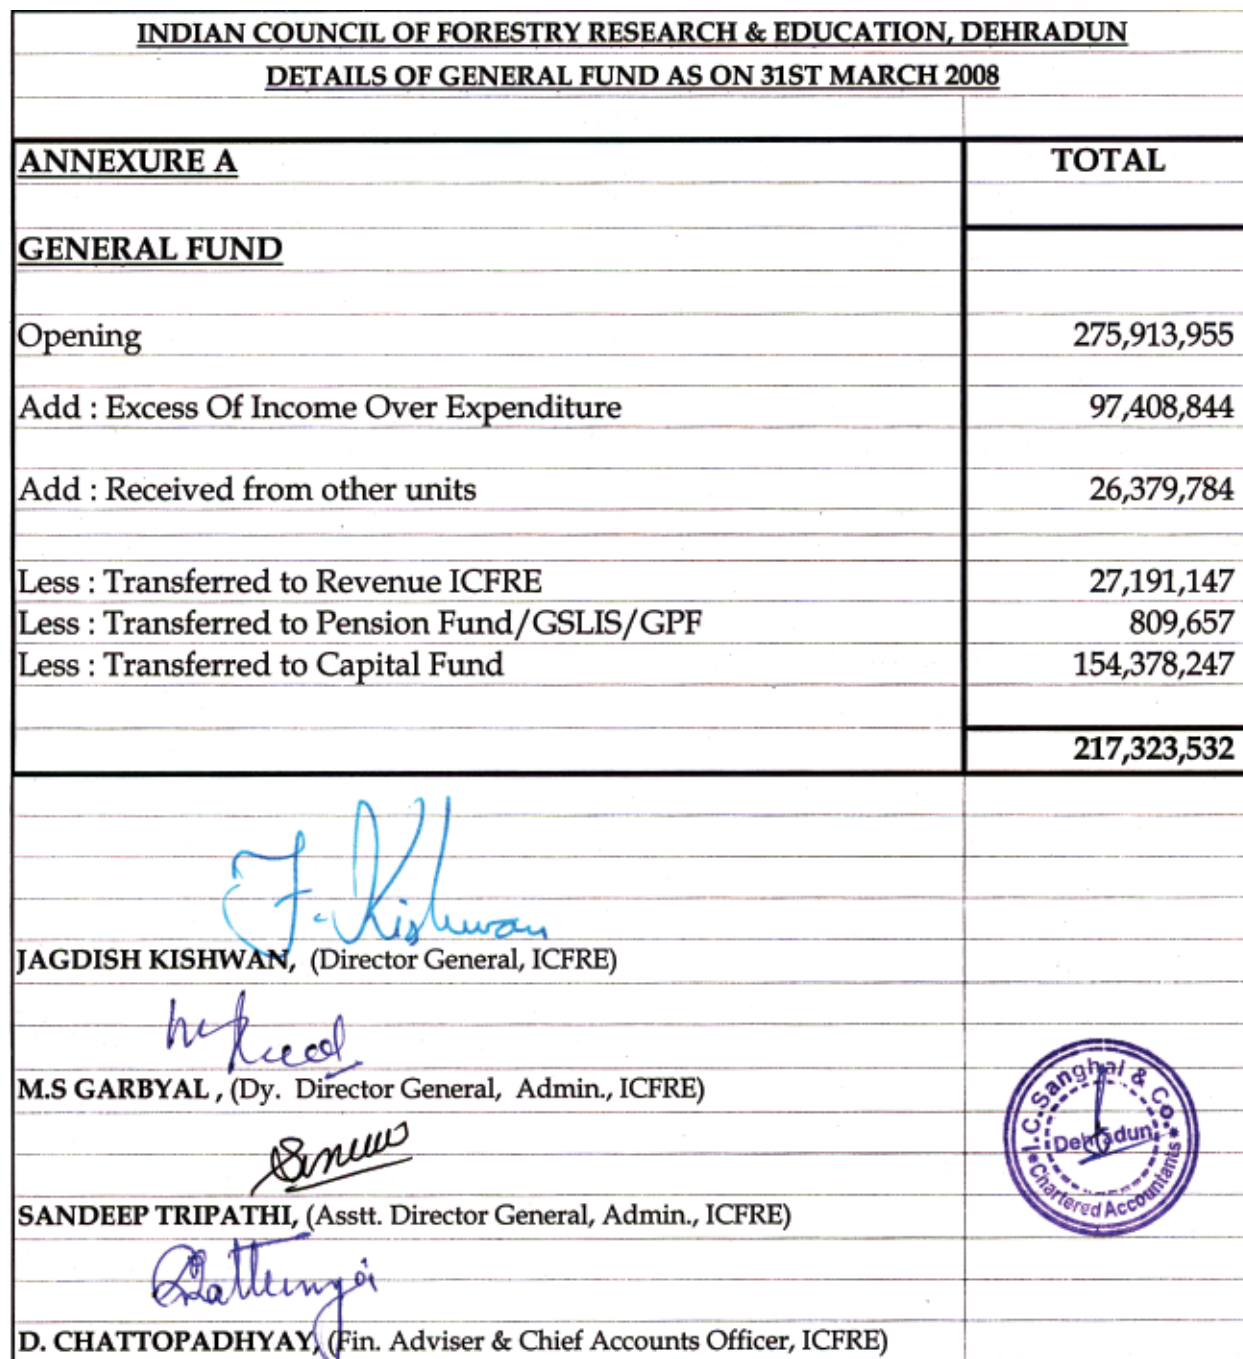 INDIAN COUNCIL OF FORESTRY RESEARCH & EDUCATION, DEHRADUN
DETAILS OF GENERAL FUND AS ON 31ST MARCH 2008
ANNEXURE A TOTAL
GENERAL FUND
Opening 275,913,955
Add : Excess Of Income Over Expenditure 97,408,844
Add : Received from other units 26,379,784
Less : Transferred to Revenue ICFRE 27,191,147
Less : Transferred to Pension Fund/GSLIS/GPF 809,657
Less : Transferred to Capital Fund 154,378,247
217,323,532
J. Kishwan
JAGDISH KISHWAN, (Director General, ICFRE)
M.S GARBYAL , (Dy. Director General, Admin., ICFRE)
I.C. Sanghal & Co.
Dehradun
* Chartered Accountants *
SANDEEP TRIPATHI, (Asstt. Director General, Admin., ICFRE)
D. CHATTOPADHYAY, (Fin. Adviser & Chief Accounts Officer, ICFRE)